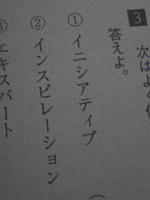 3 次はよく
答えよ。
① イニシアティブ
② インスピレーション
③ エキスパート